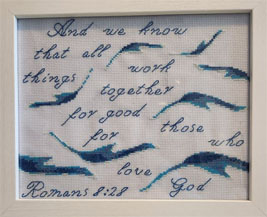 And we know
that all work
things together
for good
for those who
love
Romans 8:28 God